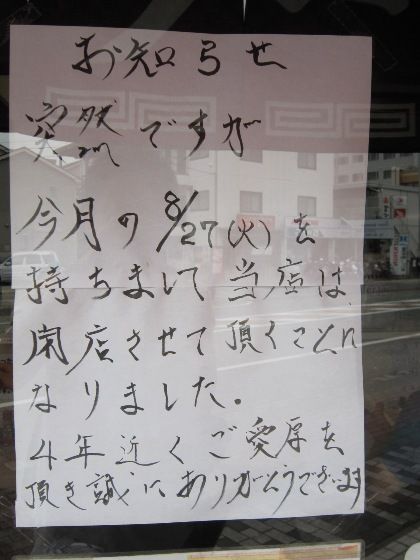 お知らせ
突然ですが
今月の8/27(火)を
持ちまして当店は、
閉店させて頂くことに
なりました。
4年近くご愛厚を
頂き誠にありがとうございます